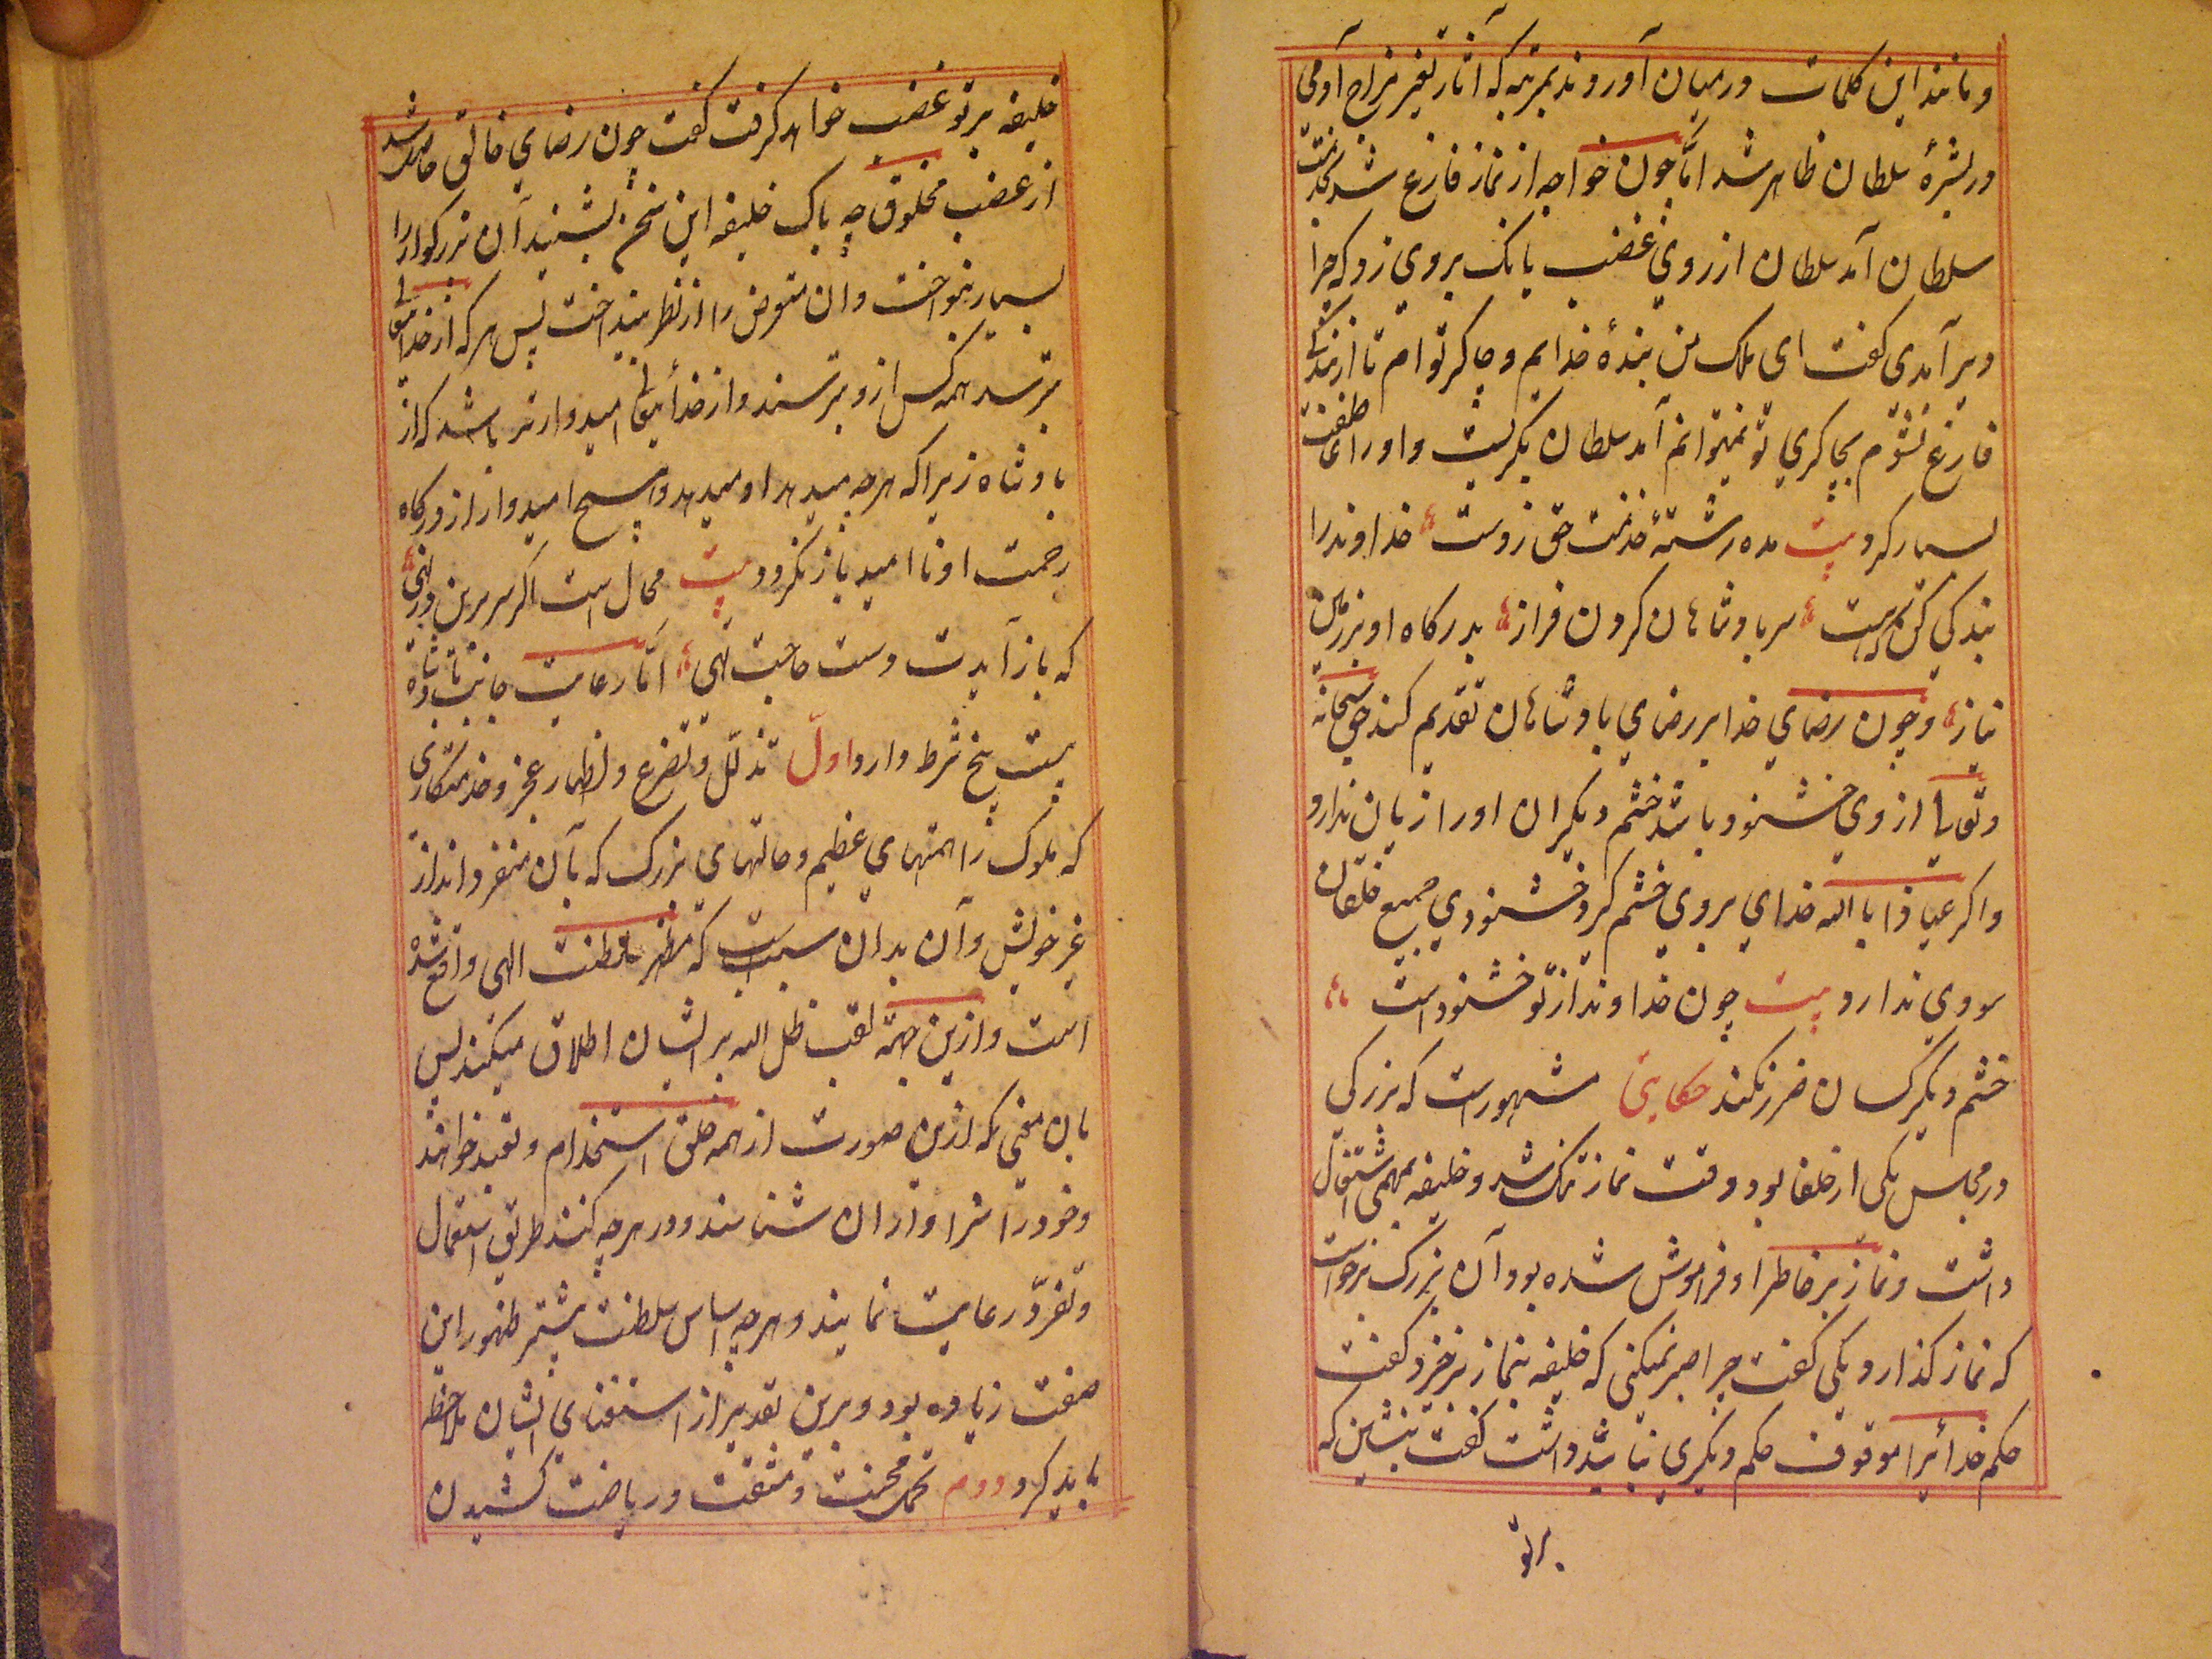 و مانند این کلمات در میان آوردند بمرتبه که آثار تغیر مزاج آدمی
در بشرهٔ سلطان ظاهر شد امّا چون خواجه از نماز فارغ شد بخدمت
سلطان آمد سلطان از روی غضب بانک بروی زد که چرا
دیر آمدی کفت ای ملک من بندهٔ خدایم و چاکر توام تا از بندکی
فارغ نشوم بچاکری تو نمیتوانم آمد سلطان بکریست و او را عاطفت
بسیار کرد بیت مده رشتهٔ خدمت حق ز دست خداوند را
بندکی کن نخست سر بادشاهان کردن فراز بدرکاه او بر زمین
نیاز و چون رضای خدا بر رضای بادشاهان تقدیم کند حق سبحانه
و تعالی از وی خشنود باشد خشم دیکران او را زیان ندارد
و اکر عیاذا بالله خدای بر وی خشم کرد خشنودی جمیع خلقان
سودی ندارد بیت چون خداوند از تو خشنود است
خشم دیکر کسان ضرر نکند حکایت مشهور است که بزرکی
در مجلس یکی از خلفا بود وقت نماز تنک شد و خلیفه بمهمی اشتغال
داشت و نماز بر خاطر او فراموش شده بود آن بزرک برخواست
که نماز کذارد یکی کفت چرا صبر نمیکنی که خلیفه بنماز برخیزد کفت
حکم خدائرا موقوف حکم دیکری نباید داشت کفت بنشین که
برتو
خلیفه بر تو غضب خواهد کرفت کفت چون رضای خالق حاصل شد
از غضب مخلوق چه باک خلیفه این سخن بشنید آن بزرکوار را
بسیار بنواخت و ان متعرض را از نظر بینداخت پس هر که از خدا تعالی
بترسد همه کس ازو بترسند و از خدا تعالی امیدوارتر باشد که از
بادشاه زیرا که هرچه میدهد او میدهد و هیچ امیدوار از درکاه
رحمت او نا امید باز نکردد بیت محال است اکر سر برین در نهی
که باز آیدت دست حاجت تهی امّا رعایت جانب بادشاه
بیست پنج شرط دارد اول تذلّل و تضرع و اظهار عجز و خدمتکاری
که ملوک را همتهای عظیم و حالتهای بزرک که بآن متفرد اند از
غیر خویش و آن بدان سبب است که مظهر سلطنت الهی واقع شده
است و ازین جهة لقب ظل الله بر ایشان اطلاق میکنند پس
بان معنی که ازین صورت از همه خلق استخدام و تعبد خواهند
و خود را سزاوار ان شناسند و در هرچه کنند طریق استعمال
و تفرّد رعایت نمایند و هرچه اساس سلطنت بیشتر ظهور این
صفت زیاده بود و برین تقدیر از استغنای ایشان ملاحظه
باید کرد دوم تحمل محنت و مشقت و ریاضت کشیدن